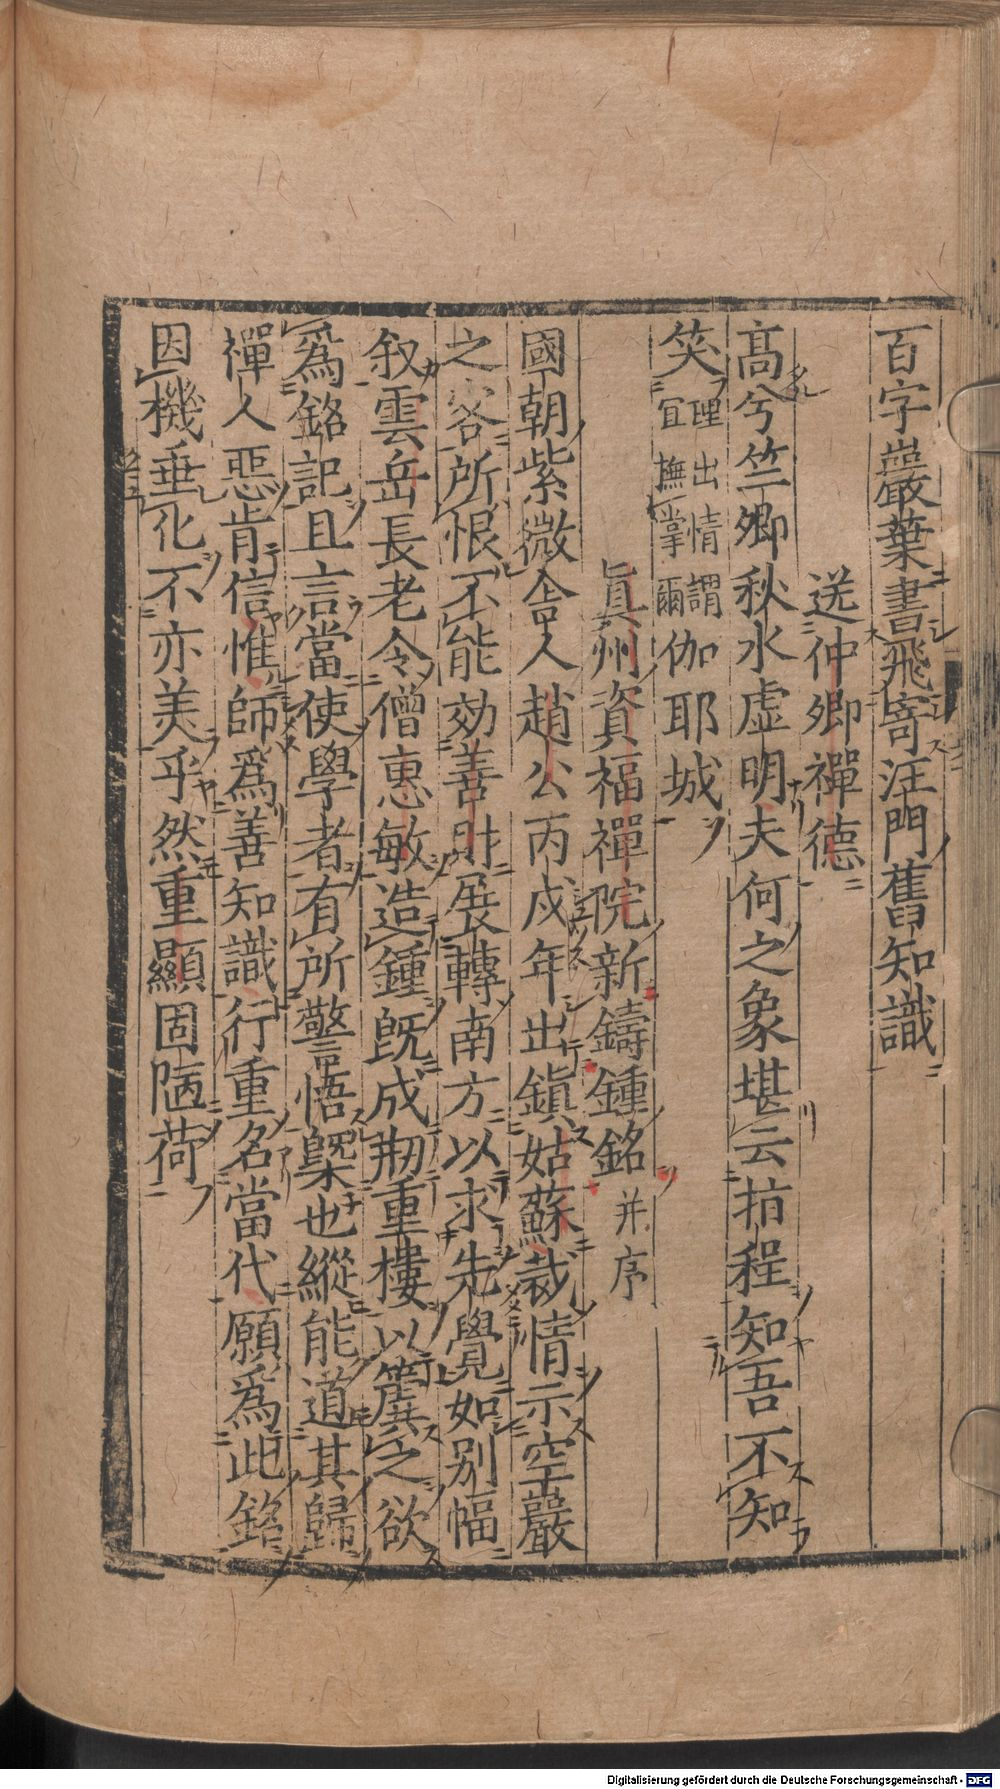 百字巖葉書飛寄汪門舊知識
送仲卿禪德
高兮竺卿秋水虛明夫何之象堪云拍程知吾不知
笑理出情謂宜撫掌爾伽耶城
眞州資福禪院新鑄鍾銘并序
國朝紫微舍人趙公丙戌年出鎮姑蘇裁情示空巖
之客所恨不能効善財展轉南方以求先覺如別幅
叙雲岳長老令僧惠敏造鍾旣成刱重樓以簴之欲
爲銘記且言當使學者有所警悟槩也縱能道其歸
禪人惡肯信惟師爲善知識行重名當代願爲此銘
因機垂化不亦美乎然重顯固陋荷
Digitalisierung gefördert durch die Deutsche Forschungsgemeinschaft - DFG